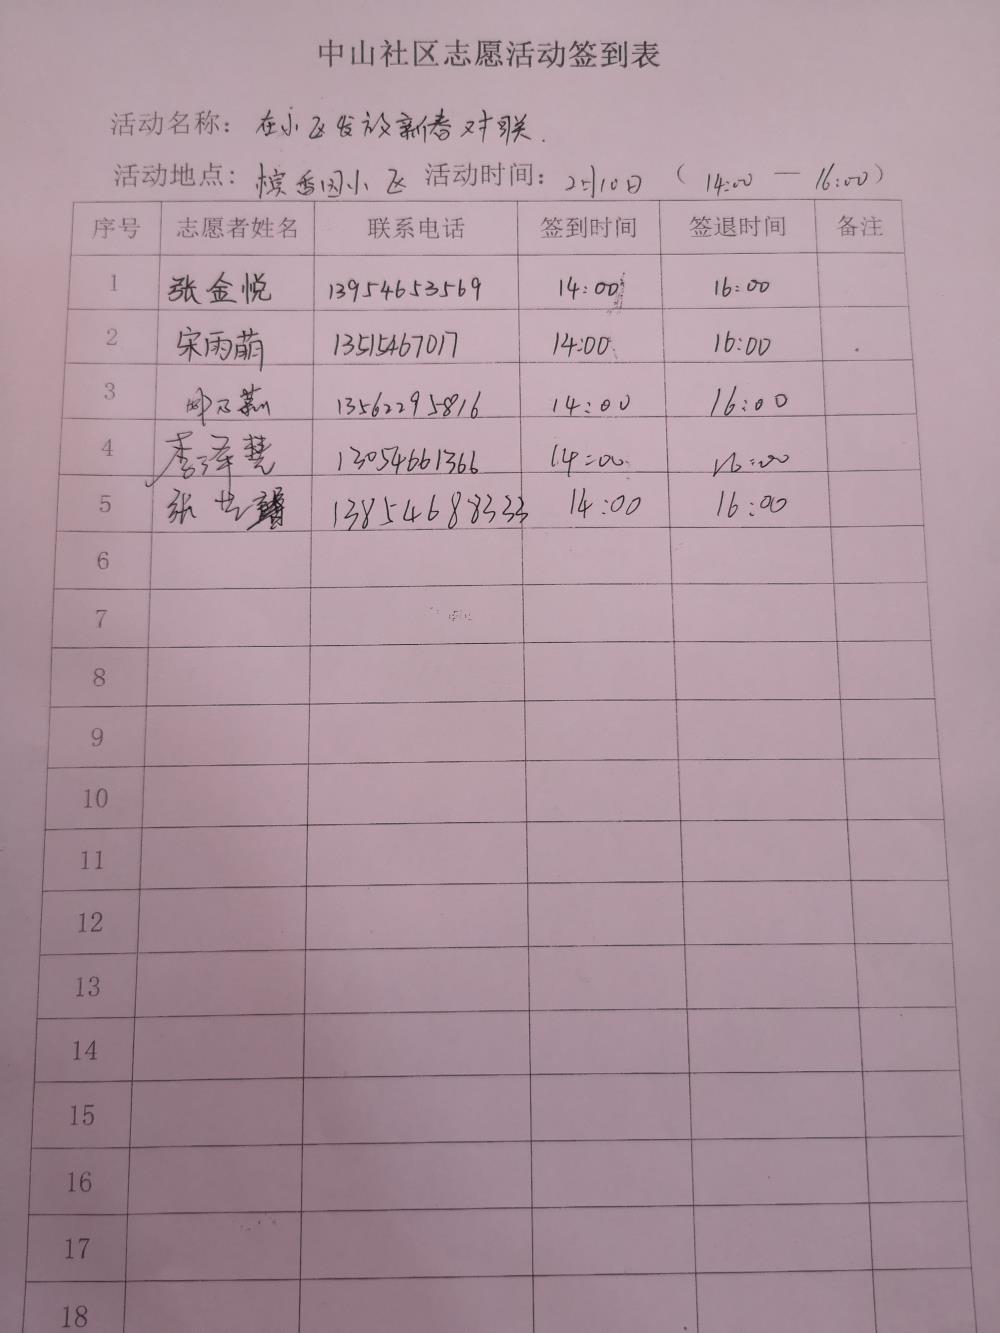 中山社区志愿活动签到表
活动名称：在小区发放新春对联.
活动地点：槟香园小区 活动时间：2月10日（14:00 — 16:00）
序号 志愿者姓名 联系电话 签到时间 签退时间 备注
1 张金悦 13954653569 14:00 16:00
2 宋雨萌 13515467017 14:00 16:00
3 13562295816 14:00 16:00
4 李泽慧 13054661366 14:00 16:00
5 张 13854688333 14:00 16:00
6
7
8
9
10
11
12
13
14
15
16
17
18